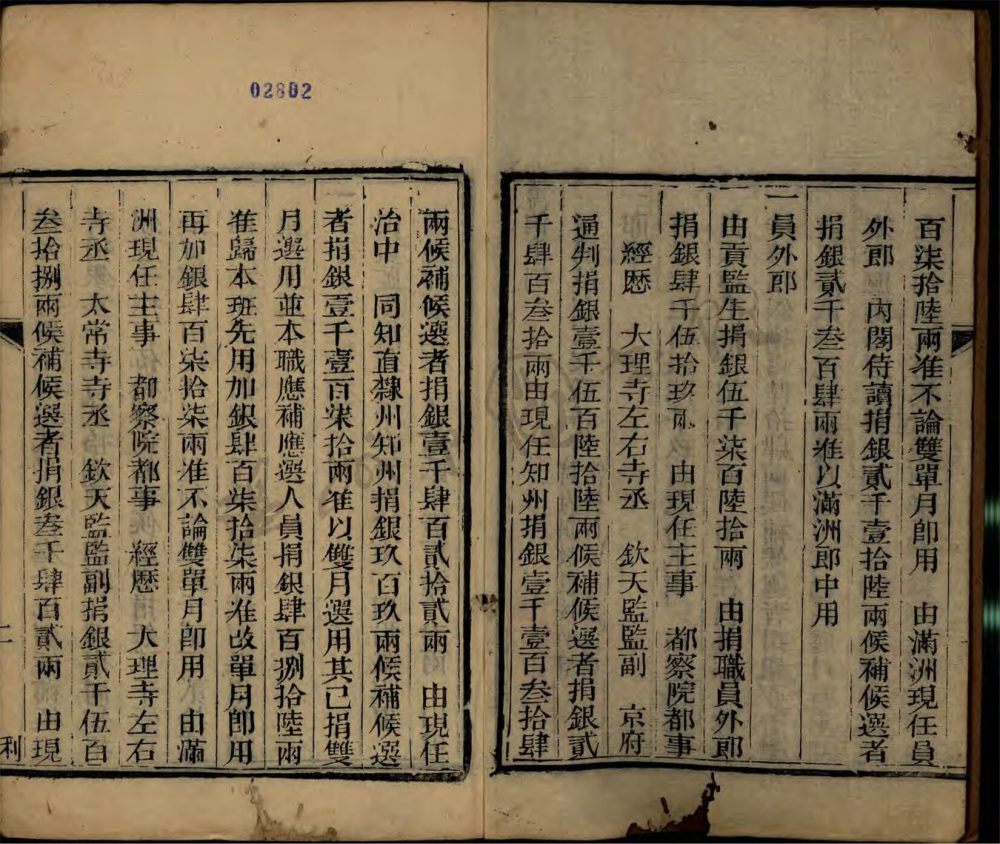 02802
百柒拾陸兩准不論雙單月卽用　由滿洲現任員
外郎　內閣侍讀捐銀貳千壹拾陸兩候補候選者
捐銀貳千叁百肆兩准以滿洲郎中用
一員外郎
由貢監生捐銀伍千柒百陸拾兩　由捐職員外郎
捐銀肆千伍拾玖兩　由現任主事　都察院都事
經歷　大理寺左右寺丞　欽天監監副　京府
通判捐銀壹千伍百陸拾陸兩候補候選者捐銀貳
千肆百叁拾兩由現任知州捐銀壹千壹百叁拾肆
兩候補候選者捐銀壹千肆百貳拾貳兩　由現任
治中　同知直隸州知州捐銀玖百玖兩候補候選
者捐銀壹千壹百柒拾兩准以雙月選用其已捐雙
月選用並本職應補應選人員捐銀肆百捌拾陸兩
准歸本班先用加銀肆百柒拾柒兩准改單月卽用
再加銀肆百柒拾柒兩准不論雙單月卽用　由滿
洲現任主事　都察院都事　經歷　大理寺左右
寺丞　太常寺寺丞　欽天監監副捐銀貳千伍百
叁拾捌兩候補候選者捐銀叁千肆百貳兩　由現
二
利